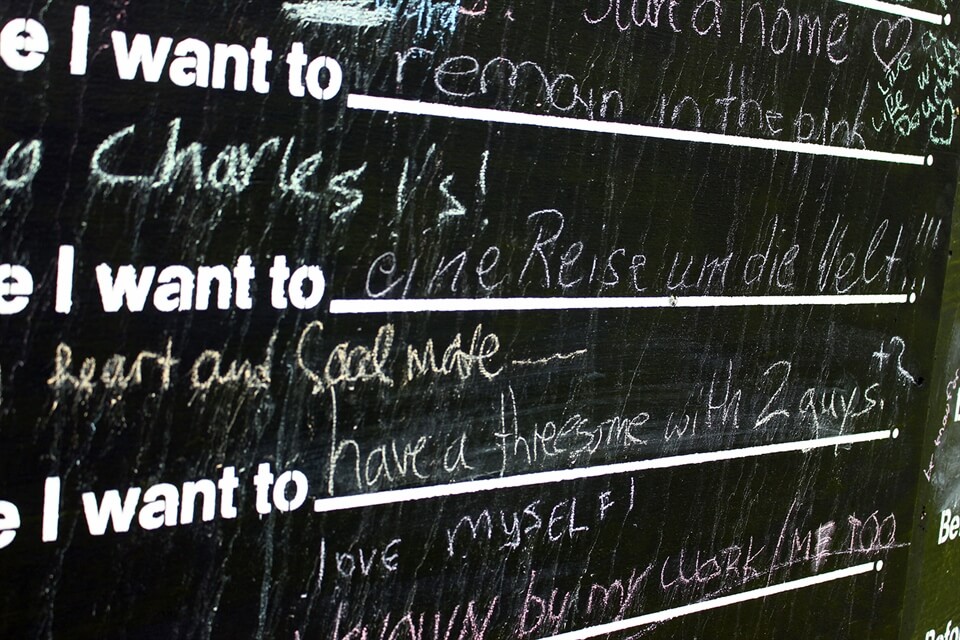 Start a home ♡
e I want to remain in the pink
LIVE
LIFE
Charles 1's!
e I want to eine Reise um die Welt!!!
heart and Soal mate
+2
e I want to have a threesome with 2 guys.
love MYSELF!
by my WORK / ME TOO
Be
Befo